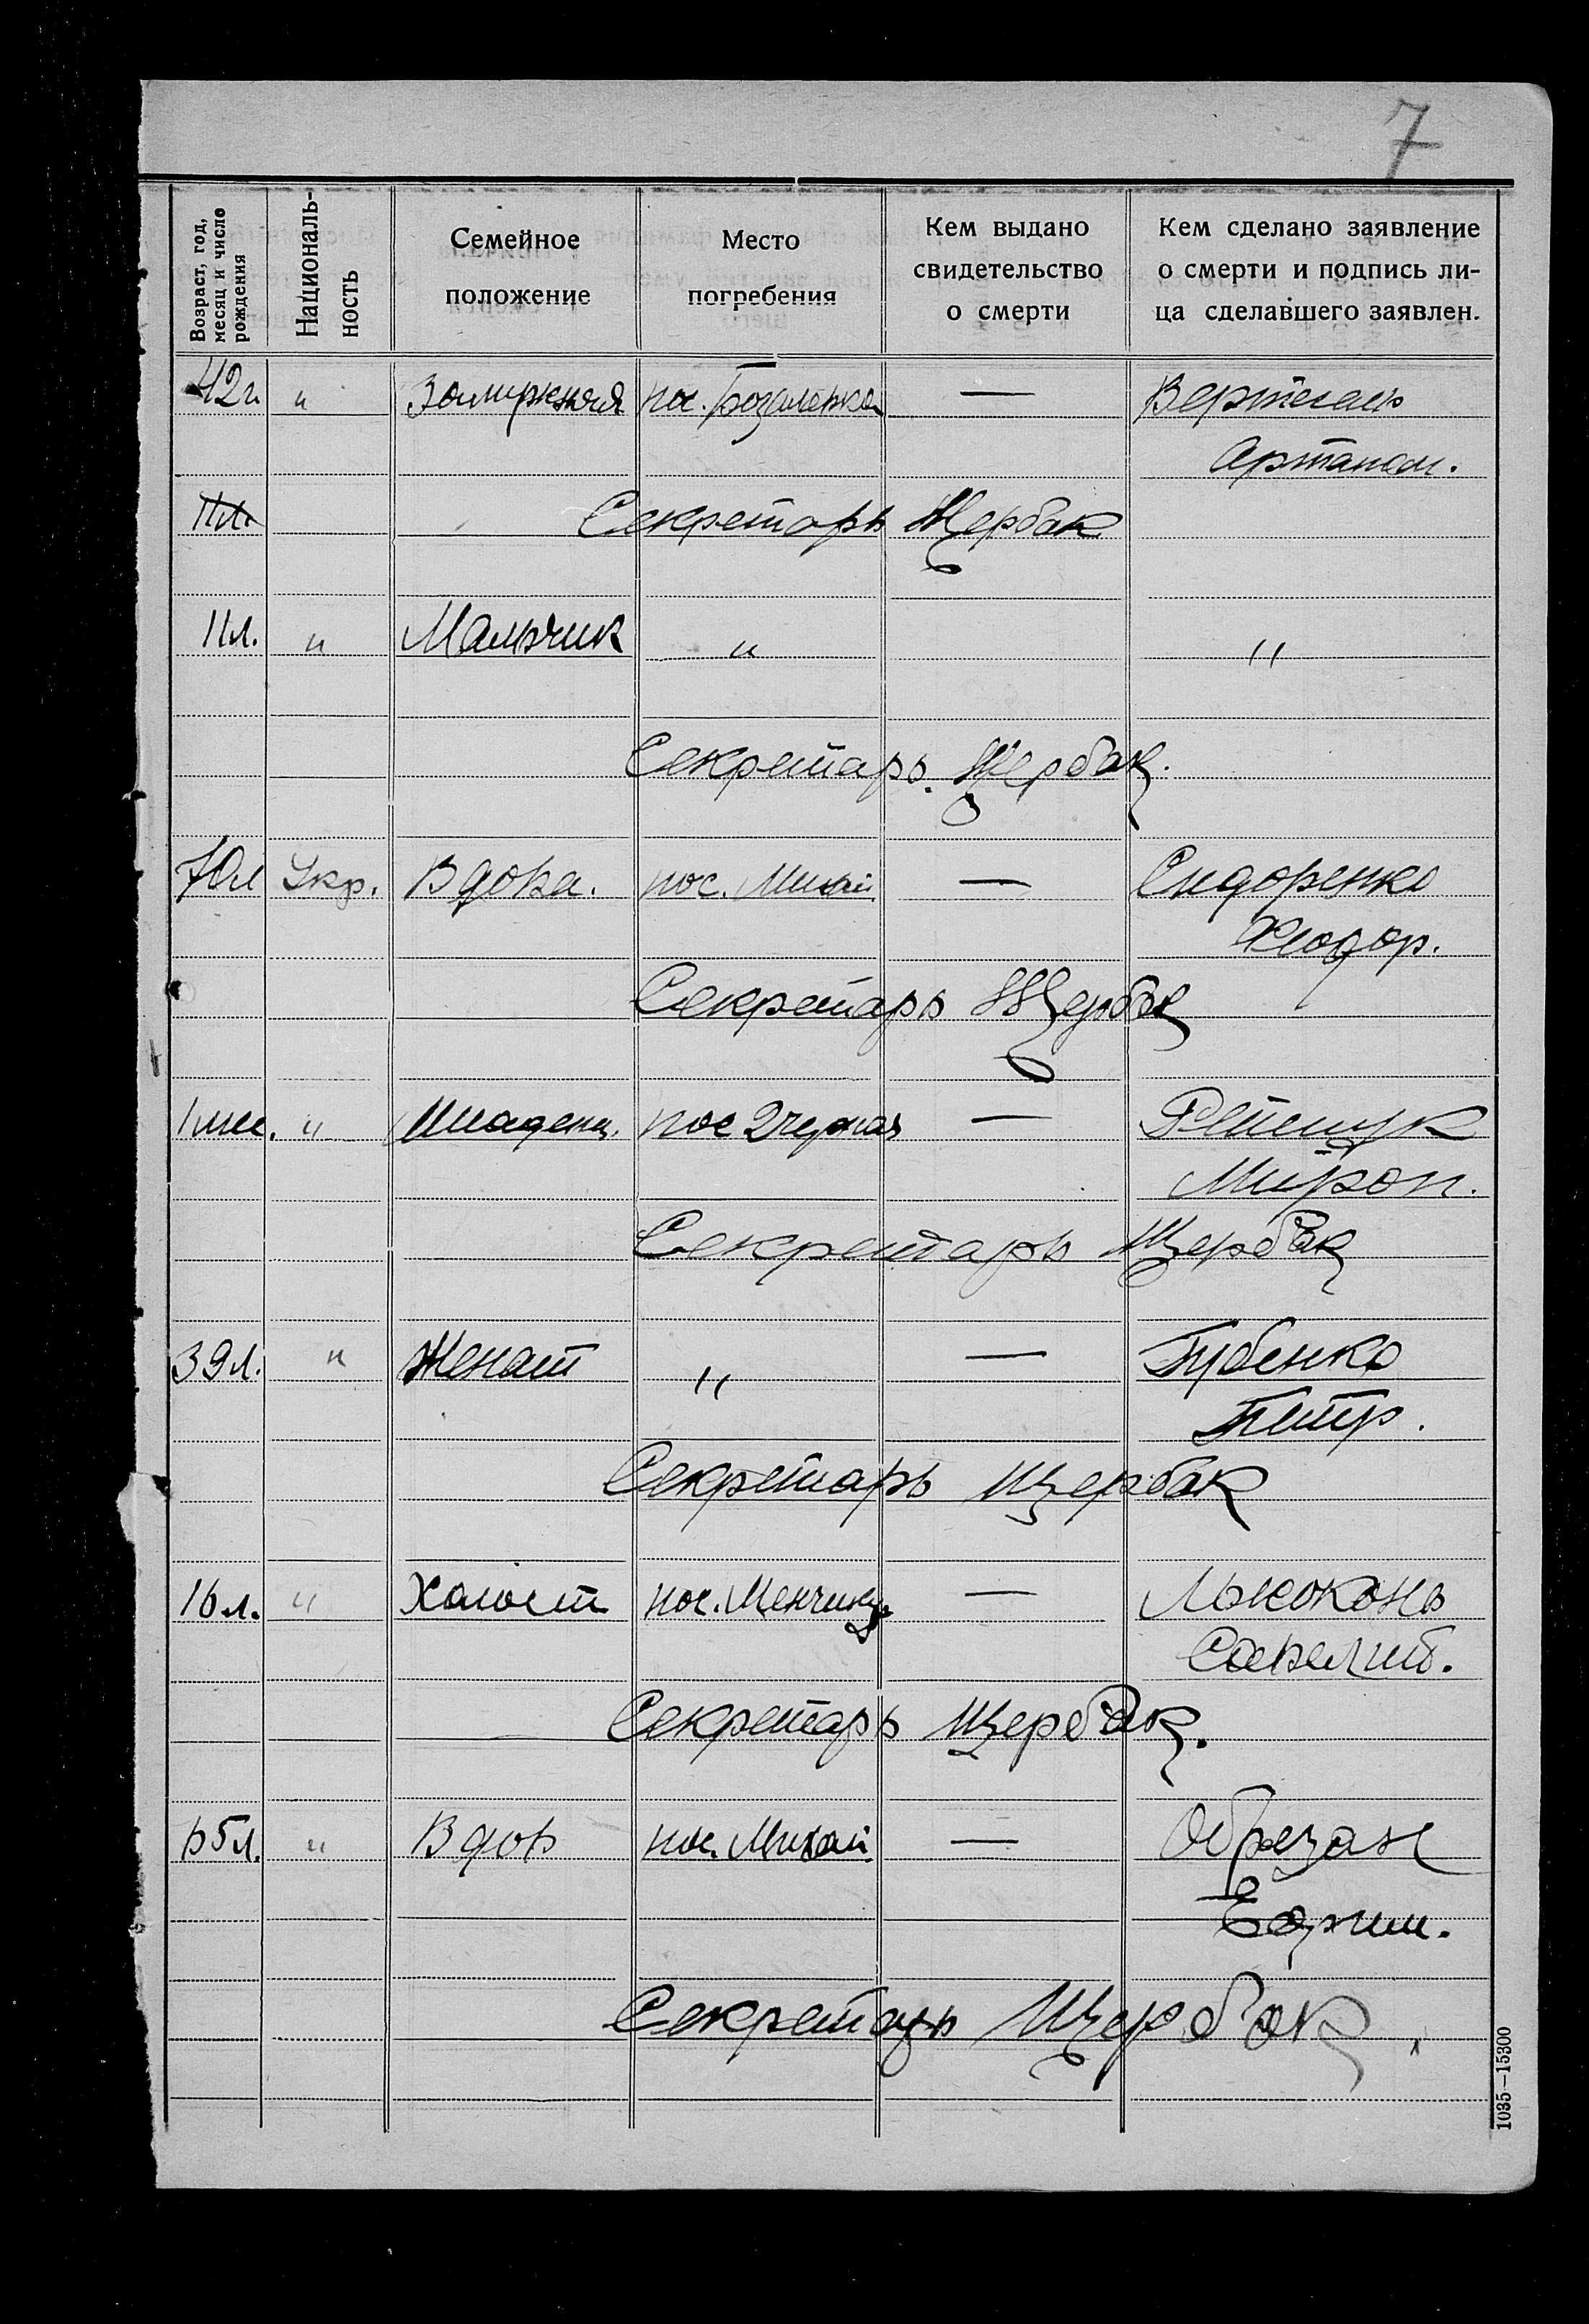 7
Возраст, год, месяц и число рождения
Националь-ность
Семейное положение
Место погребения
Кем выдано свидетельство о смерти
Кем сделано заявление о смерти и подпись ли-ца сделавшего заявлен.
42г. " Замужняя пос. — Вертегель
Артапом.
11л.
Секретарь Щербак
11л. " Мальчик " "
Секретарь. Щербак.
70л Укр. Вдова. пос. Михай — Сидоренко
Феодор.
Секретарь Щербак
1 мес. " Младенец. пос — 
Мирон.
Секретарь Щербак
39л. " Женат " — Губенко
Петр.
Секретарь Щербак
16л. " Холост пос. — Лысоконь
Савелий.
Секретарь Щербак.
65л. " Вдов пос. Михай. — Обрезан
Ефим.
Секретарь Щербак.
1035—15300